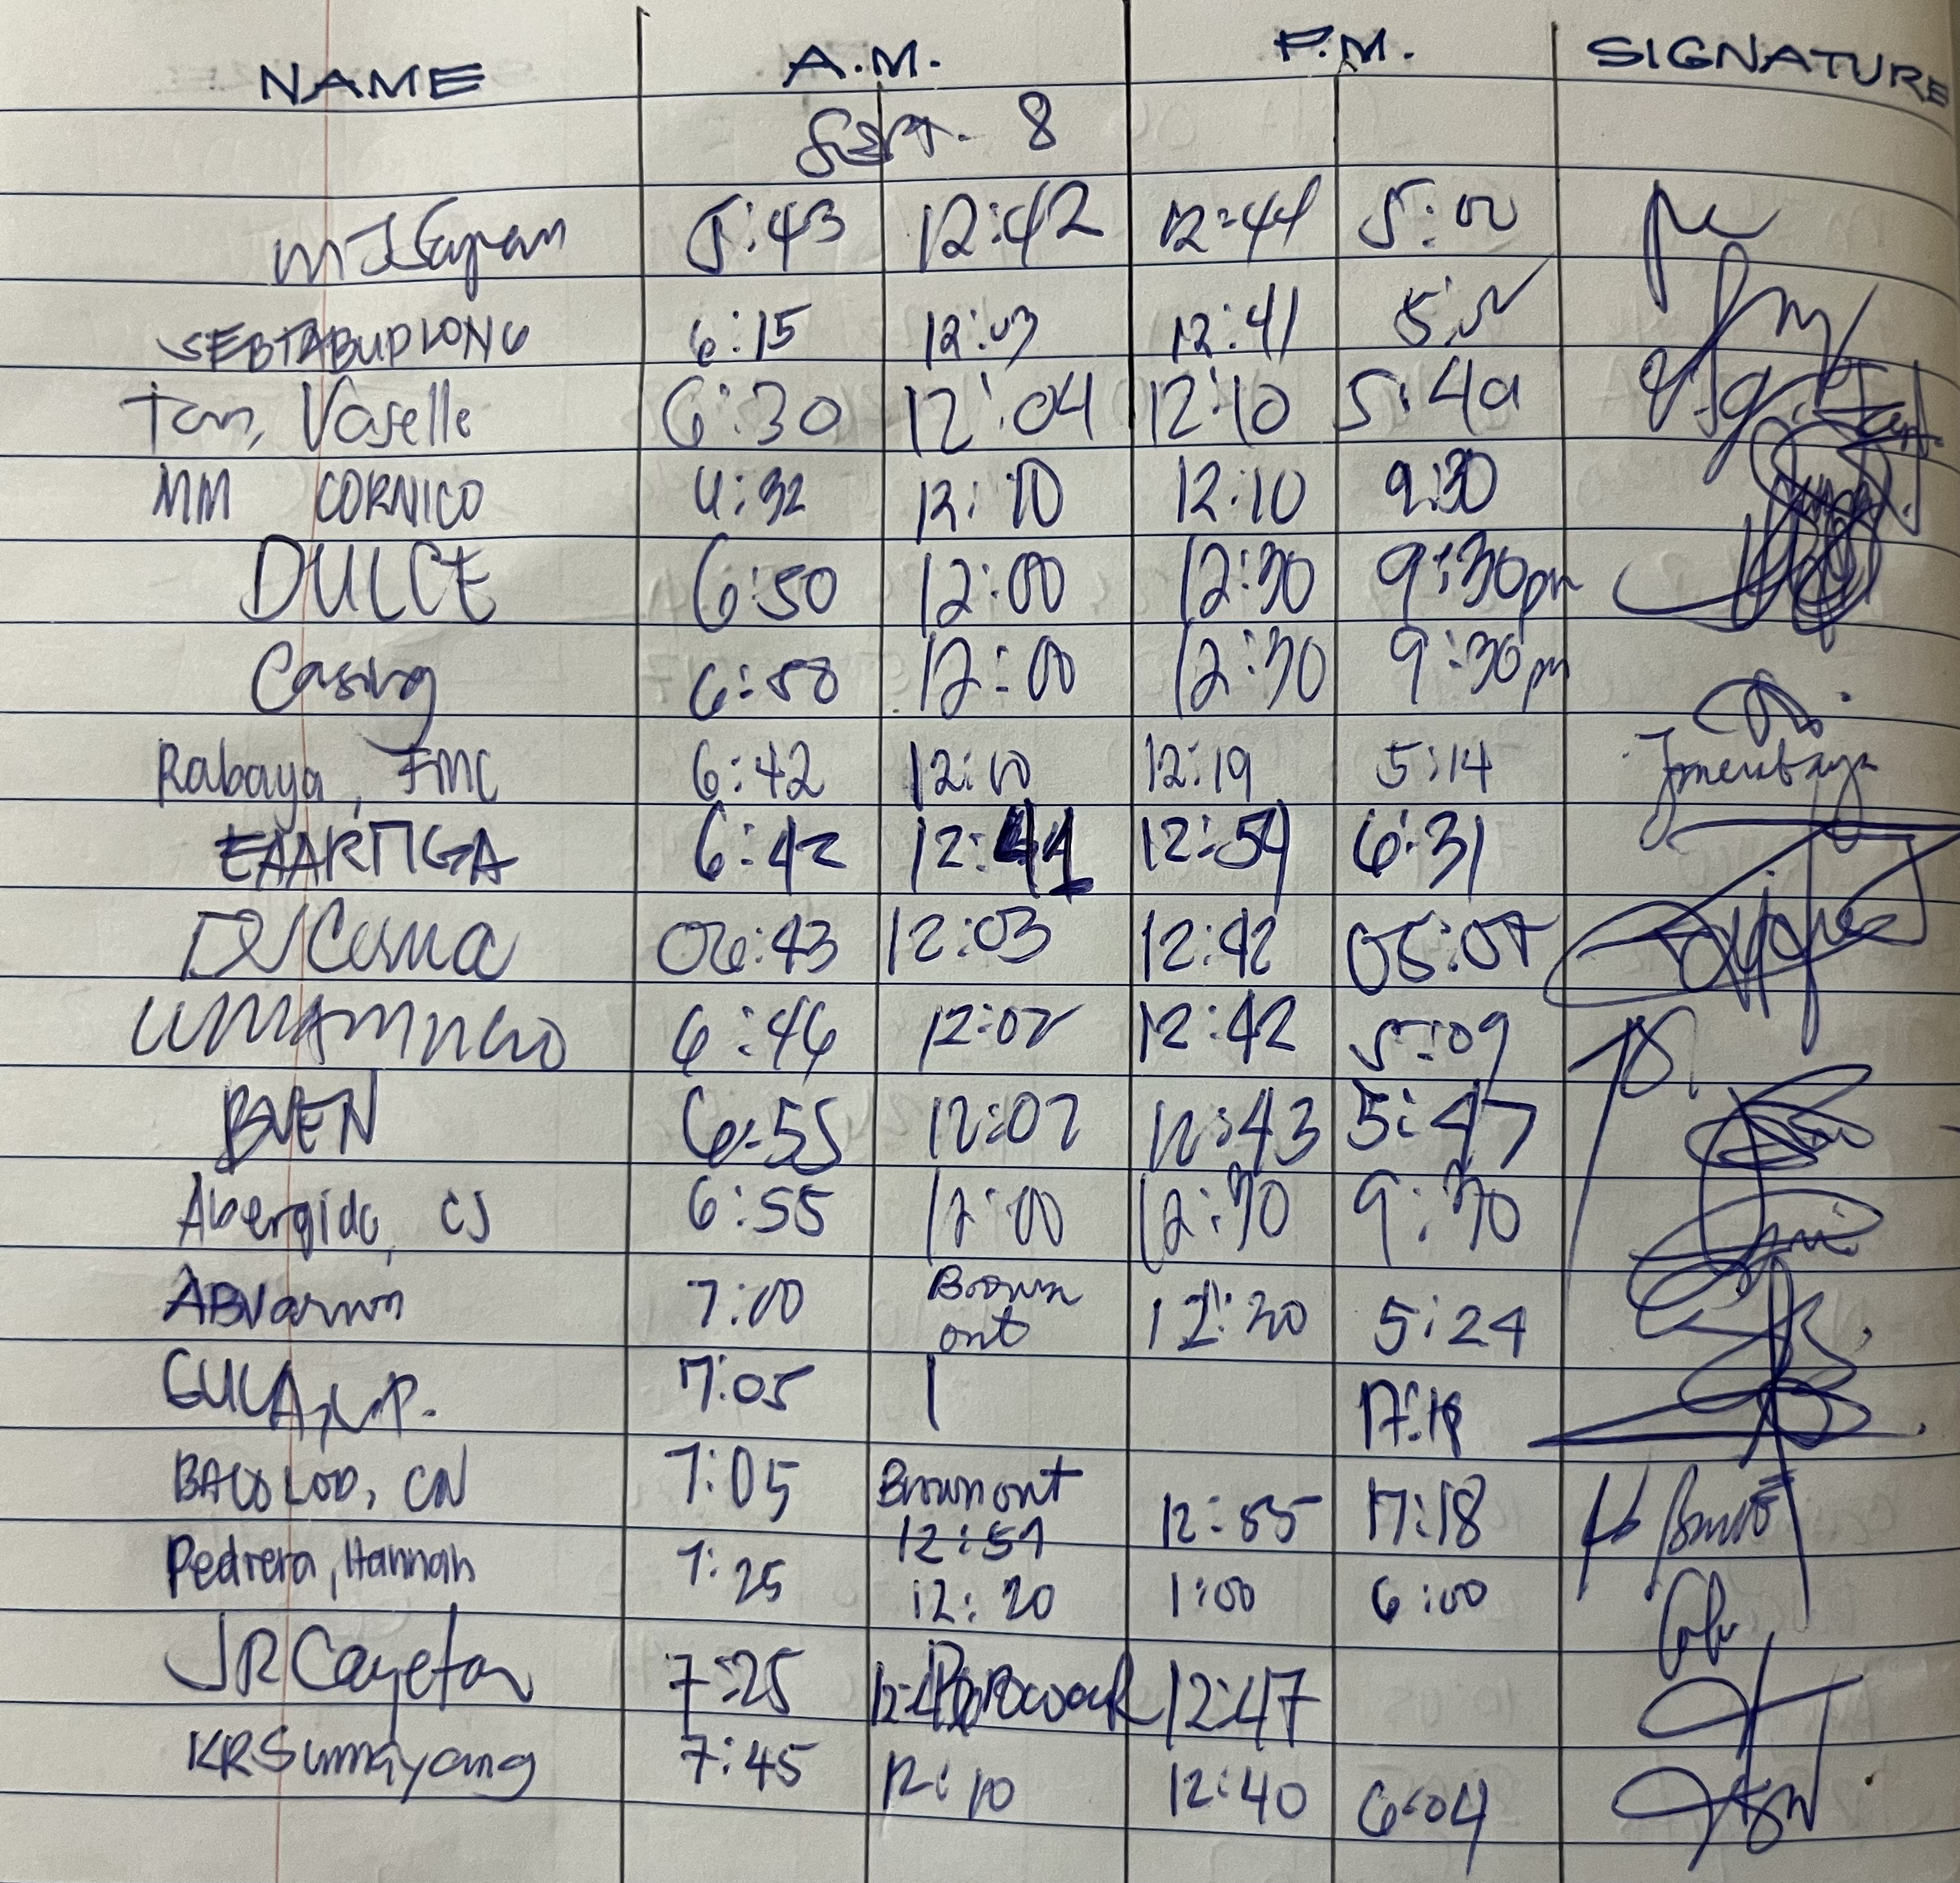 NAME A.M. P.M. SIGNATURE
Sept. 8
5:43 12:42 12:44 5:00
SEBTABUDLONG 6:15 12:03 12:41
Tan, Vaselle 6:30 12:04 12:10 5:40
MM CORNICO 4:32 12:10 12:10 9:30
DULCE 6:50 12:00 12:30 9:30pm
Casing 6:58 12:00 12:30 9:30pm
Rabaya, FMC 6:42 12:10 12:19 5:14
EAARTIGA 6:42 12:41 12:54 6:31
06:43 12:03 12:42 05:07
6:46 12:02 12:42 5:09
BUEN 6:55 12:02 12:43 5:47
Abergido, CJ 6:55 12:00 12:30 9:30
7:00 Brown out 12:20 5:24
7:05
BACOLOD, CN 7:05 Brownout 12:51 12:55 17:18
Pedrera, Hannah 7:25 12:20 1:00 6:00
JRCayetan 7:25 12:47
KRSumayang 7:45 12:10 12:40 6:04